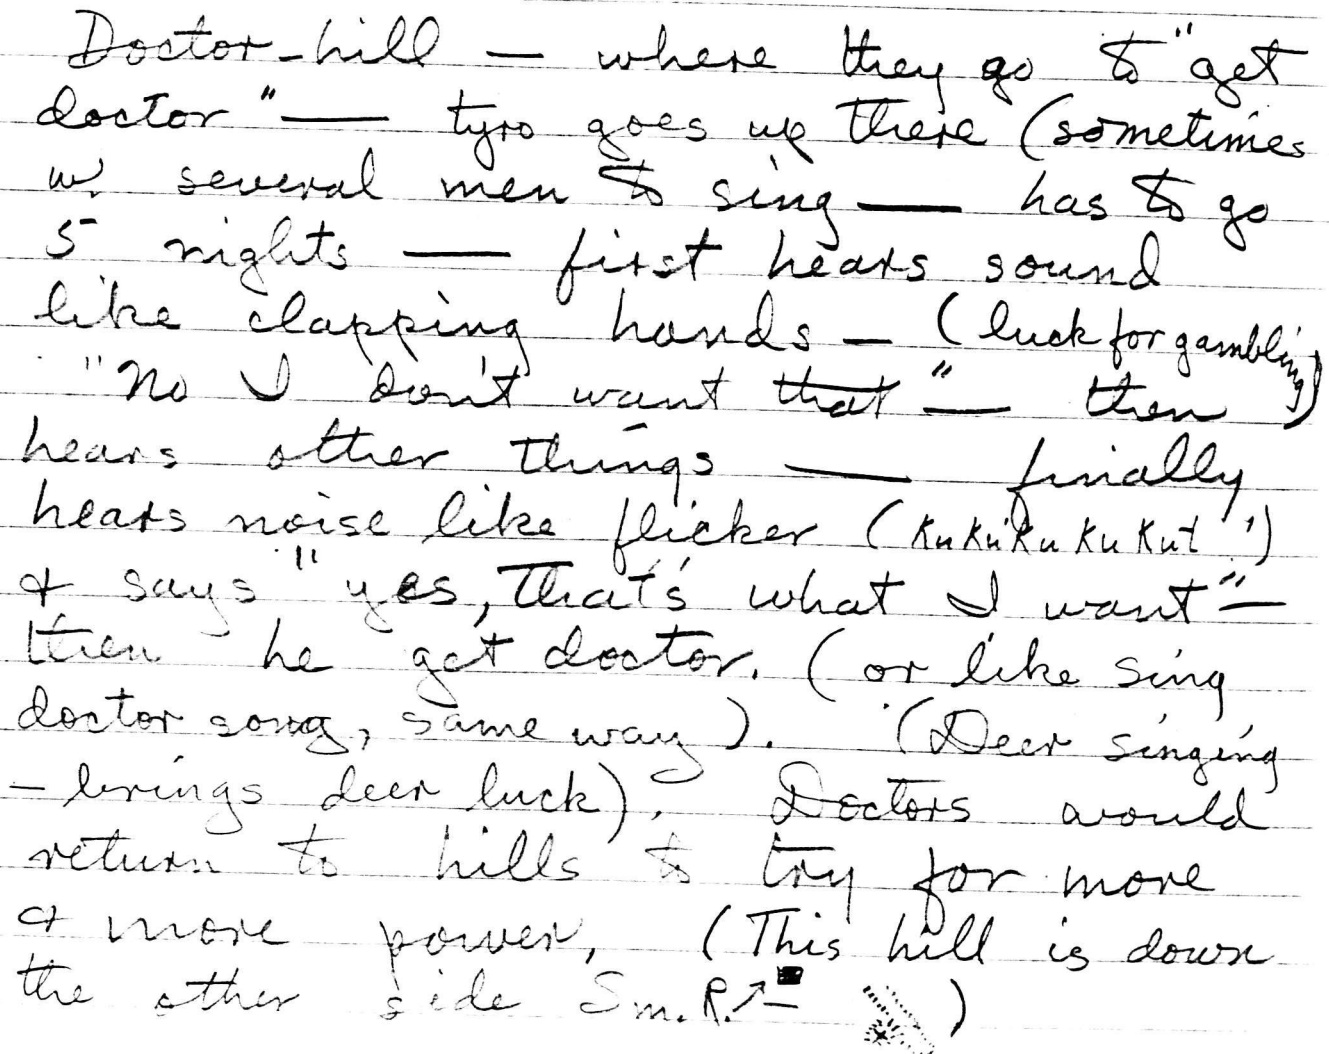 Doctor-hill — where they go to "get
doctor" — tyro goes up there (sometimes
w. several men to sing — has to go
5 nights — first hears sound
like clapping hands — (luck for gambling)
"No I don't want that" — then
hears other things — finally
hears noise like flicker (KuKuKuKuKut!')
& says "yes, that's what I want" —
then he get doctor. (or like sing
doctor song, same way). (Deer singing
- brings deer luck). Doctors would
return to hills to try for more
& more power. (This hill is down
the other side Sm. R. )